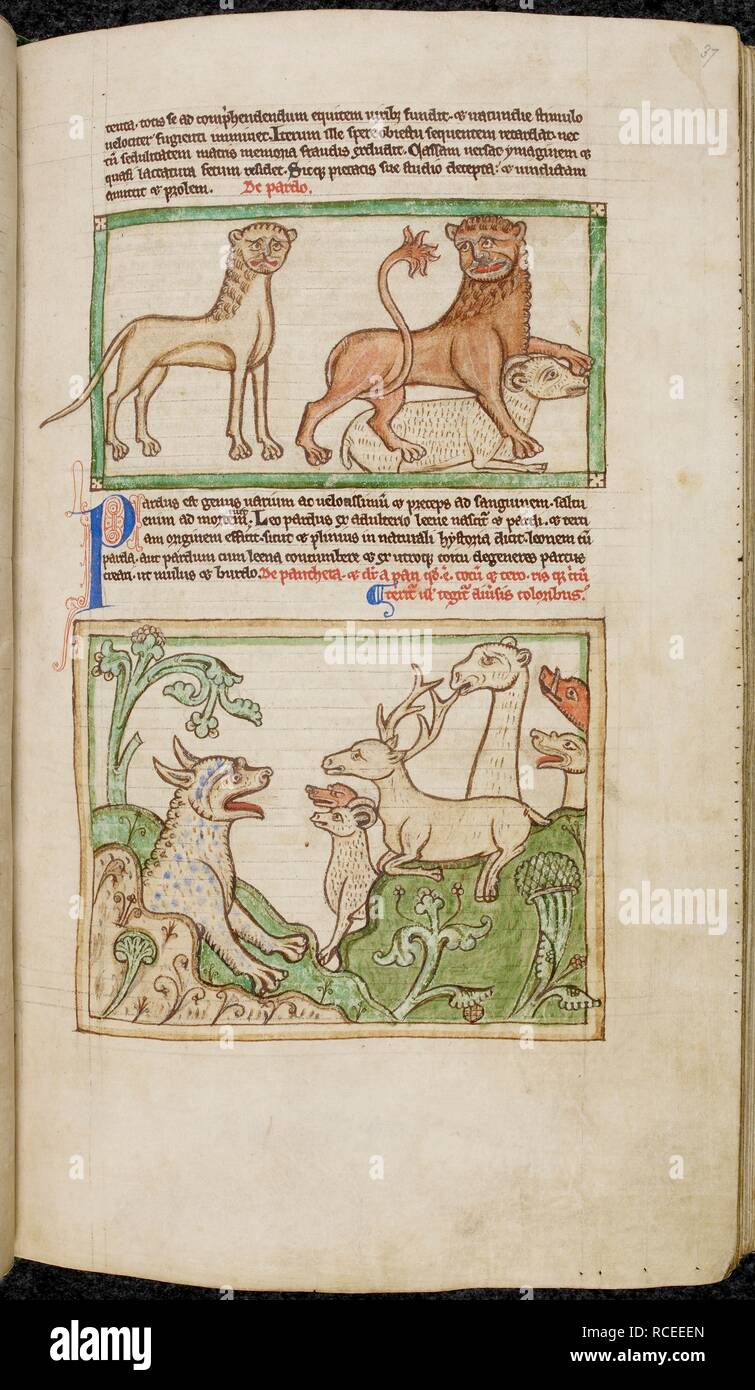 37
tenta. totis se ad comp̃hendendum equitem uiribꝫ fundit. & uacundie stimulo
uelociter fugienti imminet. Iterum ille spere obiectu sequentem retardat. nec
tñ sedulitatem matris memoria fraudis excludit. Cassam uersat ymaginem &
quasi lactatura fetum residet. Sicqꝫ pietatis sue studio decepta: & uindictam
amittit & prolem. De pardo.
Pardus est genus uarium ac uelocissimũ & preceps ad sanguinem. saltu
enim ad mortem Leo pardus ex adulterio leene nascit̃ & pardi. & terti
am originem efficit. sicut & plinius in naturali hystoria dicit. leonem cũ
parda. aut pardum cum leena concumbere & ex utroqꝫ coitu degeneres partus
creari. ut mulus & burdo. De panthera. & dr̃ a pan qd̃ ẽ totũ &
diuersis coloribus.
alamy
Image ID: RCEEEN
www.alamy.com